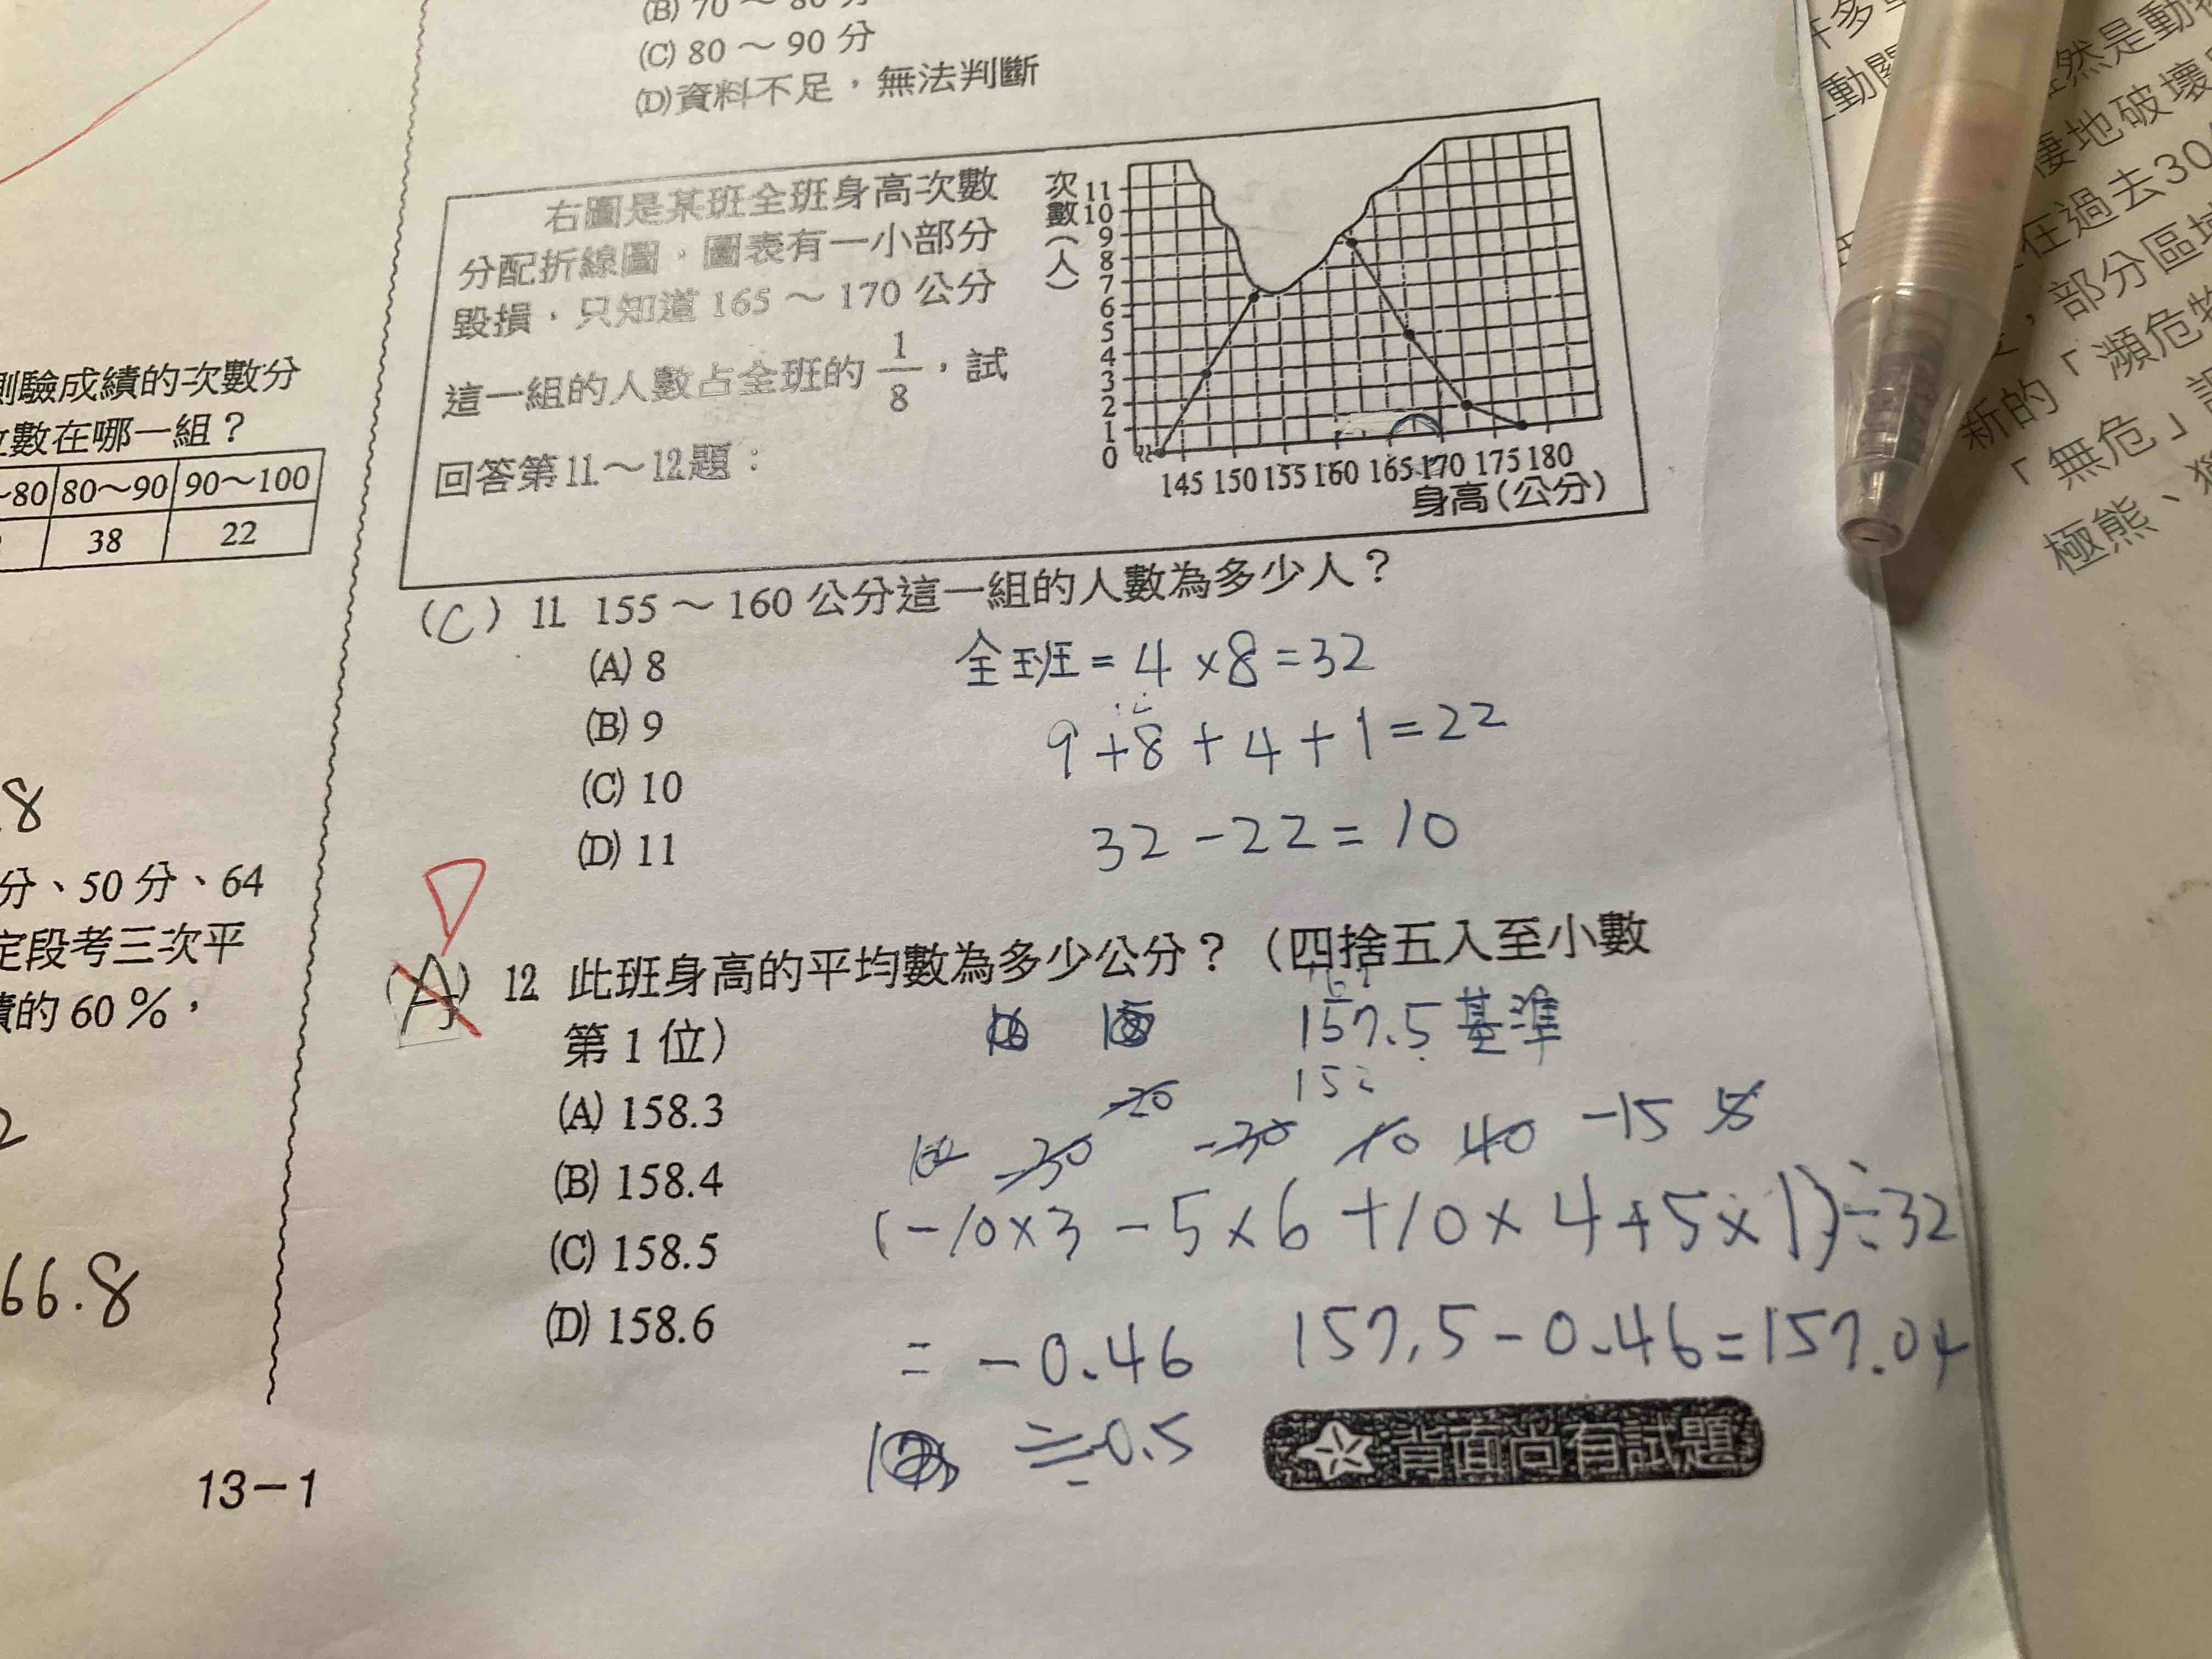 (B) 70～80分
(C) 80～90分
(D)資料不足，無法判斷
右圖是某班全班身高次數
分配折線圖，圖表有一小部分
毀損，只知道 165～170 公分
這一組的人數占全班的 1/8，試
回答第11～12題：
次數(人)
11
10
9
8
7
6
5
4
3
2
1
0
145 150 155 160 165 170 175 180
身高(公分)
(C) 11. 155～160 公分這一組的人數為多少人？
(A) 8
(B) 9
(C) 10
(D) 11
全班=4×8=32
9+8+4+1=22
32-22=10
(A) 12 此班身高的平均數為多少公分？（四捨五入至小數
第 1 位）
(A) 158.3
(B) 158.4
(C) 158.5
(D) 158.6
157.5基準
-20
-30 -30 10 40 -15 5
(-10×3-5×6+10×4+5×1)÷32
=-0.46 157.5-0.46=157.04
≒-0.5
背面尚有試題
測驗成績的次數分
數在哪一組？
~80 80～90 90～100
38 22
.8
分、50 分、64
定段考三次平
績的 60％，
2
66.8
13-1
許多
動關
然是動
棲地破壞
在過去30
，部分區域
新的「瀕危物
「無危」
極熊、